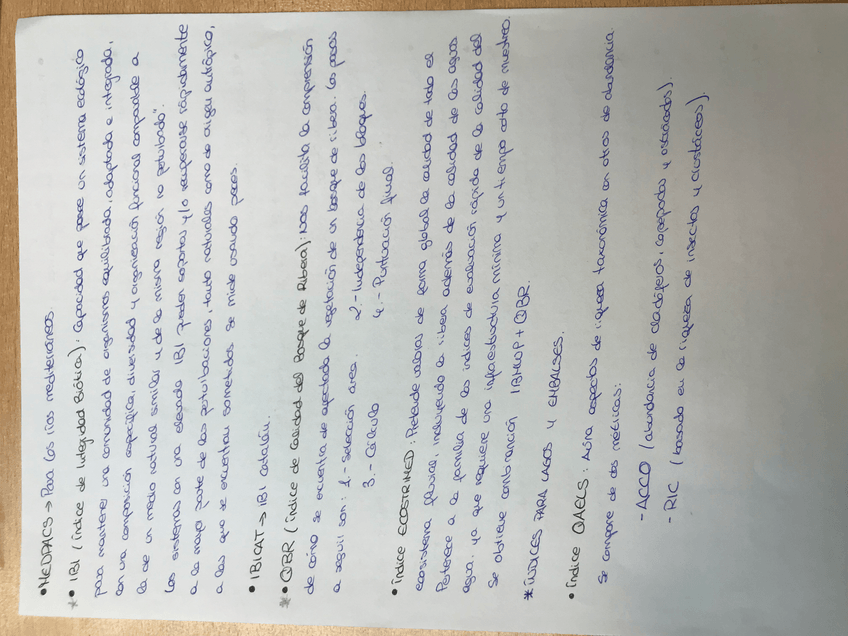 • MEDPACS → Para los ríos mediterráneos.
* • IBI (Índice de Integridad Biótica): Capacidad que posee un sistema ecológico
para mantener una comunidad de organismos equilibrada, adaptada e integrada,
con una composición específica, diversidad y organización funcional comparable a
la de un medio natural similar y de la misma región no perturbado".
Los sistemas con una elevada IBI pueden soportar y/o recuperarse rápidamente
a la mayor parte de las perturbaciones, tanto naturales como de origen antrópico,
a las que se encuentran sometidas. Se mide usando peces.
• IBICAT → IBI catalán.
* • QBR (Índice de Calidad del Bosque de Ribera): Nos facilita la comprensión
de cómo se encuentra de afectada la vegetación de un bosque de ribera. Los pasos
a seguir son: 1.- Selección área. 2.- Independencia de los bloques.
3.- Cálculo 4.- Puntuación final.
• Índice ECOSTRIMED: Pretende valorar de forma global la calidad de todo el
ecosistema fluvial, incluyendo la ribera además de la calidad de las aguas
Pertenece a la familia de los índices de evaluación rápida de la calidad del
agua. ya que requiere una infraestructura mínima y un tiempo corto de muestreo.
Se obtiene combinación IBMWP + QBR.
* ÍNDICES PARA LAGOS Y EMBALSES.
• Índice QAELS: Aúna aspectos de riqueza taxonómica con otros de abundancia.
Se compone de dos métricas:
- ACCO (abundancia de cladóceros, copépodos y ostrácodos).
- RIC (basado en la riqueza de insectos y crustáceos).